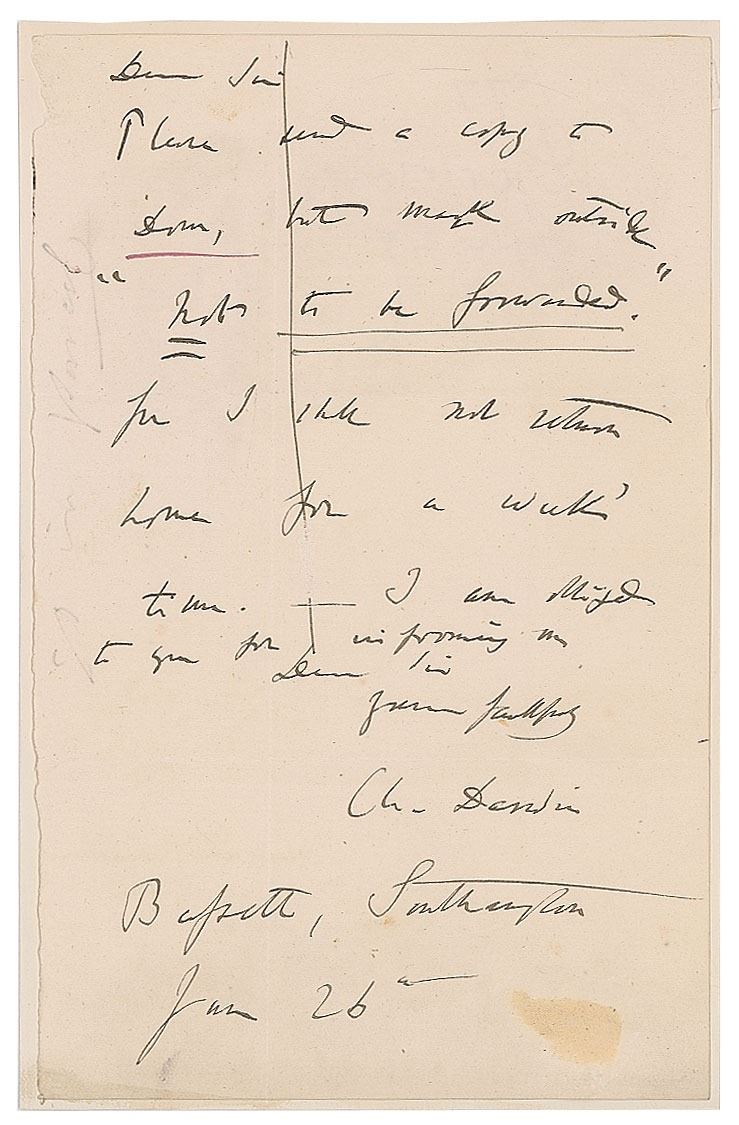 Dear Sir
Please send a copy to
Down, but mark outside
"Not to be forwarded."
for I shall not return
home for a week's
time. — I am obliged
to you for informing me
Dear Sir
yours faithfully
Ch. Darwin
Bassett, Southampton
June 26th